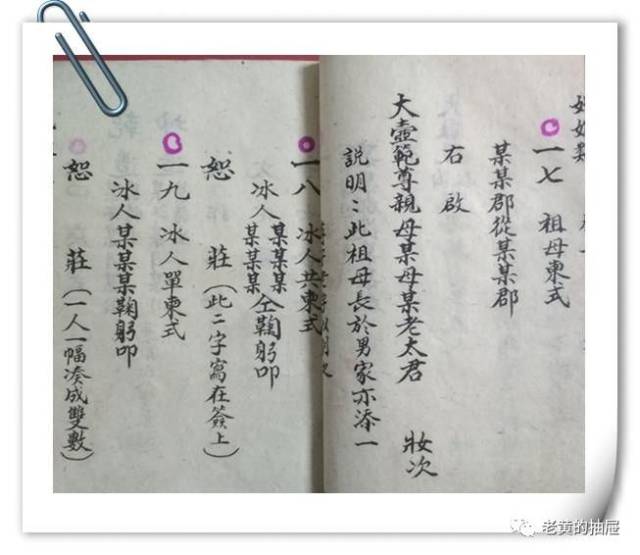 一七 祖母柬式
某某郡從某某郡
右啟
大壼範尊親母某母某老太君 妝次
說明：此祖母長於男家亦添一
一八 冰人共柬式
冰人某某某某某某仝鞠躬叩
恕 莊（此二字寫在簽上）
一九 冰人單柬式
冰人某某某鞠躬叩
恕 莊（一人一幅凑成雙數）
老黄的抽屉